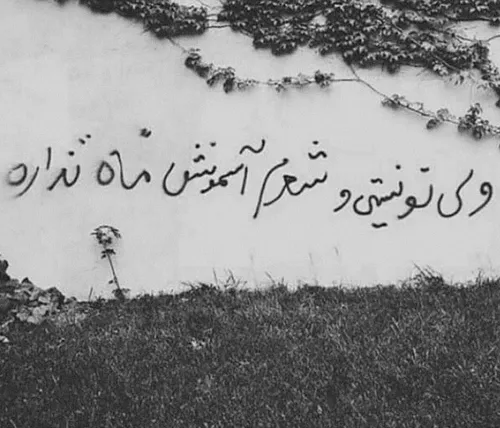 ولی تو نیستی و شعرم آسمونش ماه نداره